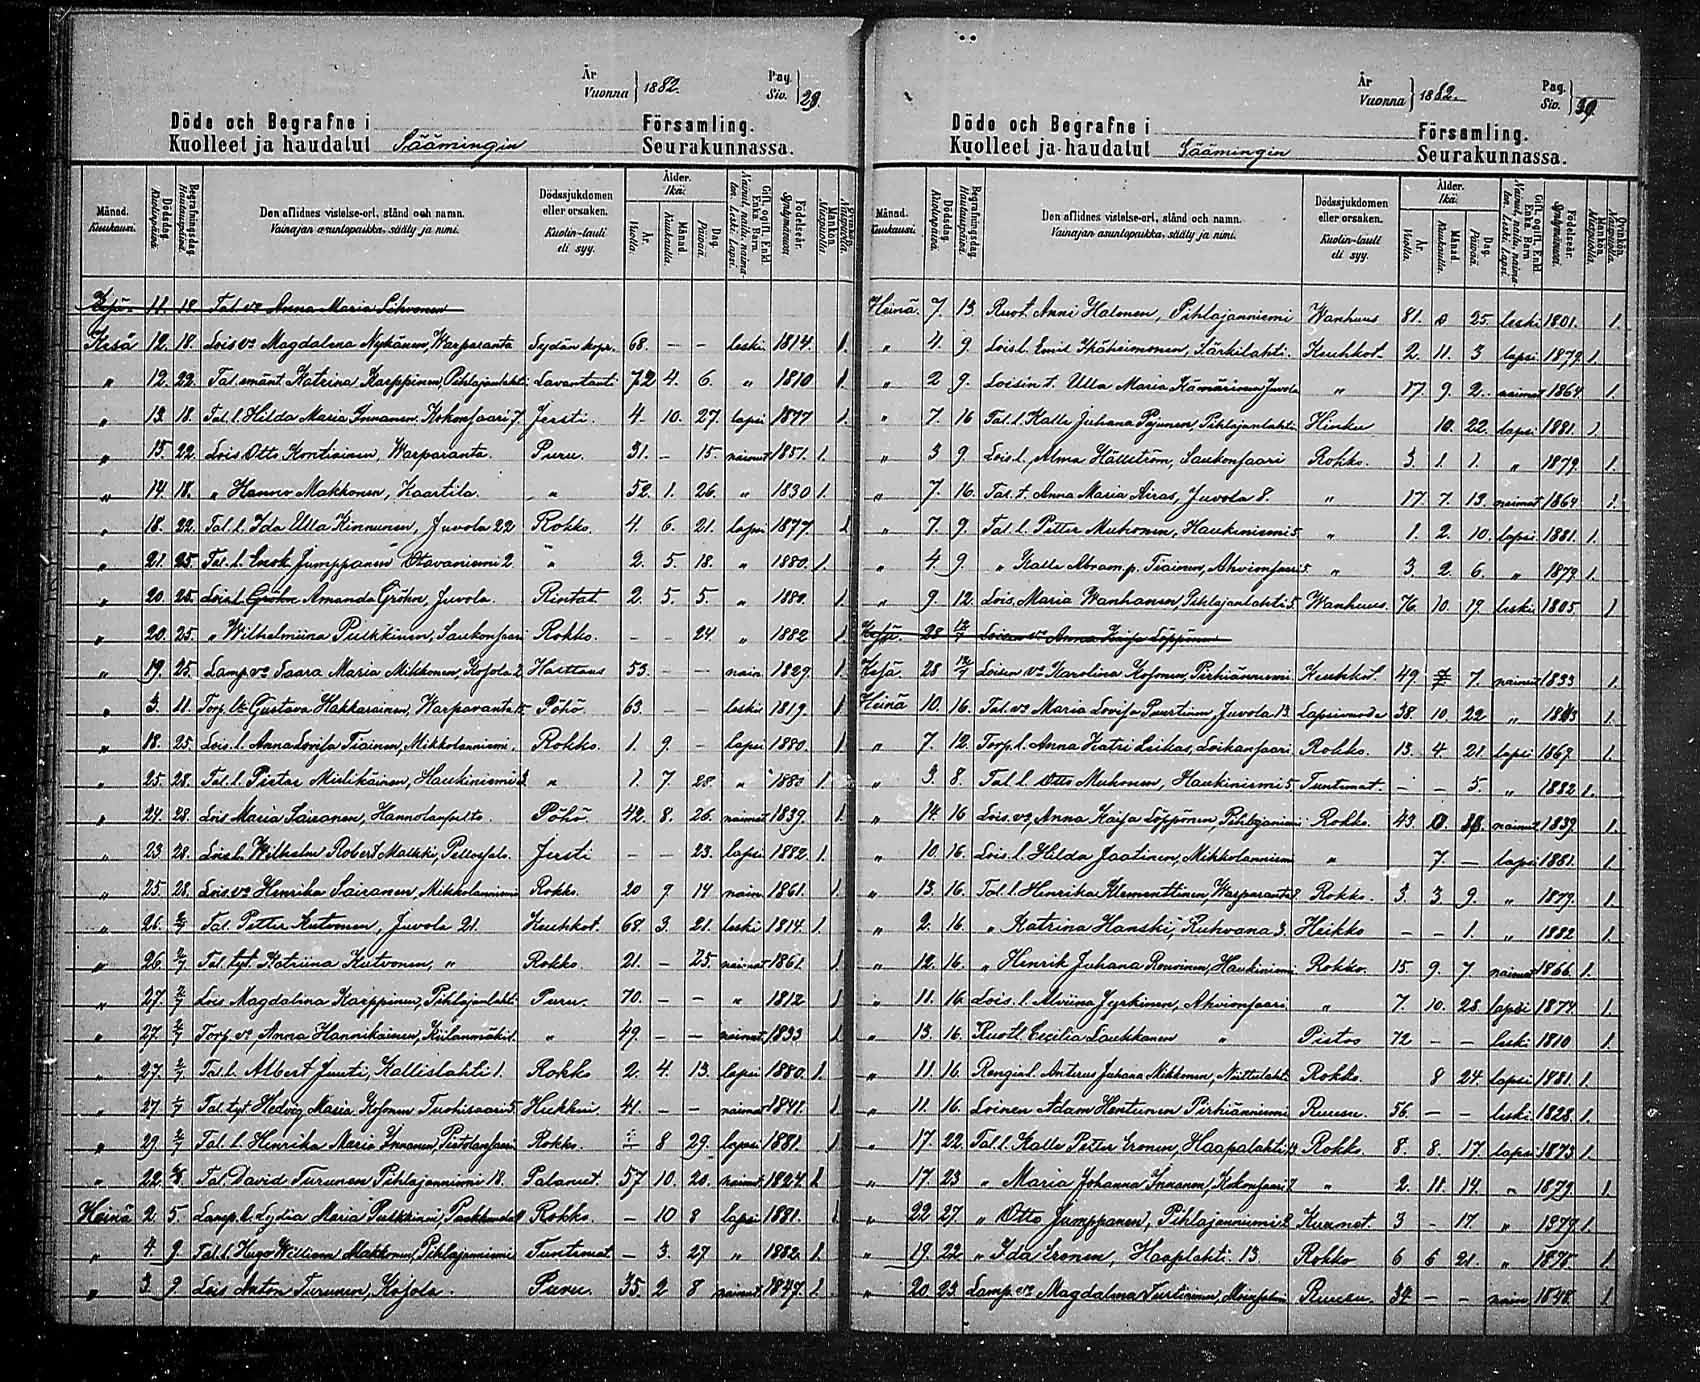 År
Vuonna } 1882.
Pag.
Siv. } 29.
Döde och Begrafne i Församling.
Kuolleet ja haudatut Säämingin Seurakunnassa.
Månad. Kuukausi.
Dödsdag. Kuolinpäivä.
Begrafningsdag. Hautauspäivä.
Den aflidnes vistelse-ort, stånd och namn. Vainajan asuntopaikka, sääty ja nimi.
Dödssjukdomen eller orsaken. Kuolin-tauti eli syy.
Ålder. Ikä.
År. Vuotta.
Månad. Kuukautta.
Dag. Päivää.
Födelseår. Syntymävuosi.
Kesä 11. 18. Tal. vo Anna Maria Sihvonen
Kesä 12. 18. Lois vo Magdalena Nykänen, Warparanta 68. – – leski 1814. 1.
" 12. 22. Tal. emänt Katrina Karppinen, Pihlajanlahti Lavantauti 72 4. 6. " 1810 1.
" 13. 18. Tal. l. Hilda Maria Innanen, Kokonsaari 7 Jersti. 4. 10. 27. lapsi 1877 1.
" 15. 22. Lois Otto Kontiainen, Warparanta. Puru. 31. – 15. naimut 1851. 1.
" 14. 18. " Makkonen, Kaartila. " 52. 1. 26. " 1830 1.
" 18. 22. Tal. l. Ida Ulla Kinnunen, Juvola 22 Rokko. 4. 6. 21. lapsi 1877 1
" 21. 25. Tal. l. Jumppanen Otavaniemi 2 " 2. 5. 18. " 1880. 1.
" 20. 25. Lois l. Gröhn Amanda Gröhn, Juvola. Rintat. 2. 5. 5. " 1880. 1.
" 20. 25. " Wilhelmiina Pulkkinen, Saukonsaari Rokko. – – 24 " 1882 1
" 19. 25. Lamp. vo Saara Maria Mikkonen, Kosola 2. 53. – – nain. 1829. 1.
" 3. 11. Torp. Gustava Hakkarainen, Warparanta Pöhö. 63. – – leski 1819. 1
" 18. 25. Lois. l. Anna Lovisa Tiainen, Mikkolanniemi. Rokko. 1. 9. – lapsi 1880. 1
" 25. 28. Tal. l. Pietar Miettikäinen, Haukiniemi 3 " 1. 7 28. " 1880 1.
" 24. 28. Lois Maria Sairanen, Hannolanpelto. Pöhö. 42. 8. 26. naimat 1839. 1.
" 23. 28. Lois l. Wilhelm Robert Malkki, Pellossalo. Jersti – – 23. lapsi 1882. 1.
" 25. 28. Lois vo Henrika Sairanen, Mikkolanniemi Rokko 20 9 14 nain. 1861. 1.
" 26. 2/7 Tal. Petter Kutvonen, Juvola 21. Keuhkot. 68. 3. 21. leski 1814. 1.
" 26. 2/7 Tal. tyt. Katriina Kutvonen, " Rokko. 21. – 25. naimat 1861. 1.
" 27. 2/7 Lois Magdalena Karppinen, Pihlajanlahti Puru. 70. – – " 1812 1
" 27. 2/7 Torp. vo, Anna Hannikainen, " 49. – – naimat 1833 1
" 27. 2/7 Tal. l. Albert Juuti, Kallislahti 1. Rokko 2. 4. 13. lapsi 1880. 1.
" 27 1/7 Tal. tyt. Hedvig Maria Kosonen Tuohisaari 5. Hukkui. 41. – – naimat 1841. 1
" 29. 2/7 Tal. l. Henrika Maria Innanen, Rokko. – 8 29. lapsi 1881. 1
" 22. Tal. David Turunen Pihlajaniemi 18. Palanut. 57 10. 20. naimut 1824. 1
Heinä 2. 5. Lamp. l. Lydia Maria Pulkkinen, Rokko. – 10 8 lapsi 1881. 1.
" 4. 9. Tal. l. Hugo William Makkonen, Pihlajaniemi Tuntemat – 3. 27 " 1882. 1.
" 3. 9. Lois Anton Turunen, Kosola. Puru. 35. 2 8 naimut 1847. 1.
År
Vuonna } 1882.
Pag.
Siv. } 30.
Döde och Begrafne i Församling.
Kuolleet ja haudatut Säämingin Seurakunnassa.
Månad. Kuukausi.
Dödsdag. Kuolinpäivä.
Begrafningsdag. Hautauspäivä.
Den aflidnes vistelse-ort, stånd och namn. Vainajan asuntopaikka, sääty ja nimi.
Dödssjukdomen eller orsaken. Kuolin-tauti eli syy.
Ålder. Ikä.
År. Vuotta.
Månad. Kuukautta.
Dag. Päivää.
Födelseår. Syntymävuosi.
Heinä. 7. 13. Ruot. Anni Halonen, Pihlajanniemi Wanhuus 81. 0 25. leski 1801. 1.
" 4. 9. Lois l. Emil Särkilahti. Keuhkot. 2. 11. 3 lapsi 1879. 1.
" 2 9. Loisin t. Ulla Maria Kämäräinen Juvola " 17. 9. 2. naimat 1864. 1.
" 7. 16 Tal. l. Kalle Juhana Pajunen, Pihlajanlahti Hinku 10. 22. lapsi 1881. 1.
" 3 9. Lois. l. Alma Hällström, Saukonsaari Rokko. 3. 1. 1. " 1879. 1.
" 7. 16. Tal. t. Anna Maria Airas, Juvola 8. " 17. 7. 13. naimat 1864 1.
" 7. 9. Tal. l. Petter Muhonen, Haukiniemi 5 " 1. 2. 10. lapsi 1881. 1.
" 4. 9. " Kalle Abram. p. Tiainen, Ahvionsaari 5. " 3. 2. 6. " 1879 1.
" 9. 12. Lois. Maria Wanhanen, Pihlajanlahti 5. Wanhuus. 76. 10. 19. leski 1805. 1
Kesä. 28 12/7 Loisen vo Anna Kaisa Löppönen
Kesä 28 12/7 Loisen vo Karolina Kosonen, Pirhiänniemi Keuhkot. 49. 7. naimat 1833 1.
Heinä 10. 16. Tal. vo Maria Lovisa Puurtinen, Juvola 13. Lapsivuode 38. 10. 22 " 1843 1.
" 7. 12. Torp. l. Anna Katri Leikas, Loikansaari. Rokko. 13. 4. 21. lapsi 1867. 1.
" 3. 8. Tal l. Otto Muhonen, Haukiniemi 5 Tuntemat. – – 5. " 1882 1.
" 14. 16 Lois. vo, Anna Kaisa Löppönen, Pihlajaniemi Rokko. 43. naimat 1839. 1.
" 10. 16. Lois. l. Hilda Jaatinen, Mikkolanniemi " 7. – lapsi 1881. 1.
" 13. 16. Tal. l. Henrika Klementtinen, Warparanta 2. Rokko. 3. 3. 9. " 1879. 1.
" 2. 16. " Katrina Hanski, Ruhvana 3. Heikko – – 1. " 1882 1.
" 12. 16. " Henrik Juhana Rouvinen, Haukiniemi Rokko. 15. 9. 7 naimat 1866. 1.
" 11. 16 Lois. l. Alviina Jyrkinen, Ahvionsaari " 7. 10. 28. lapsi 1874. 1.
" 13. 16. Ruotl. Cecilia Laukkanen " Pistos 72 – – leski 1810 1.
" 11. 16. Rengin l. Anterus Juhana Mikkonen, Niittulahti Rokko. 8 24. lapsi 1881. 1.
" 11. 16. Loinen Adam Hentunen Pirhiänniemi Ruusu. 56. – – leski 1828. 1.
" 17. 22. Tal l. Kalle Petter Eronen, Haapalahti 13 Rokko. 8. 8. 17. lapsi 1873 1.
" 17. 23 " Maria Johanna Innanen, Kokonsaari 7 " 2. 11. 14. " 1879. 1.
" 22 27. " Otto Jumppanen, Pihlajaniemi 2 3 – 17. " 1879 1.
" 19. 22 " Ida Eronen, Haaplahti 13. Rokko 6 6 21. " 1876. 1.
" 20. 23. Lamp. vo Magdalena Ruusu. 34. – – nain. 1848. 1.